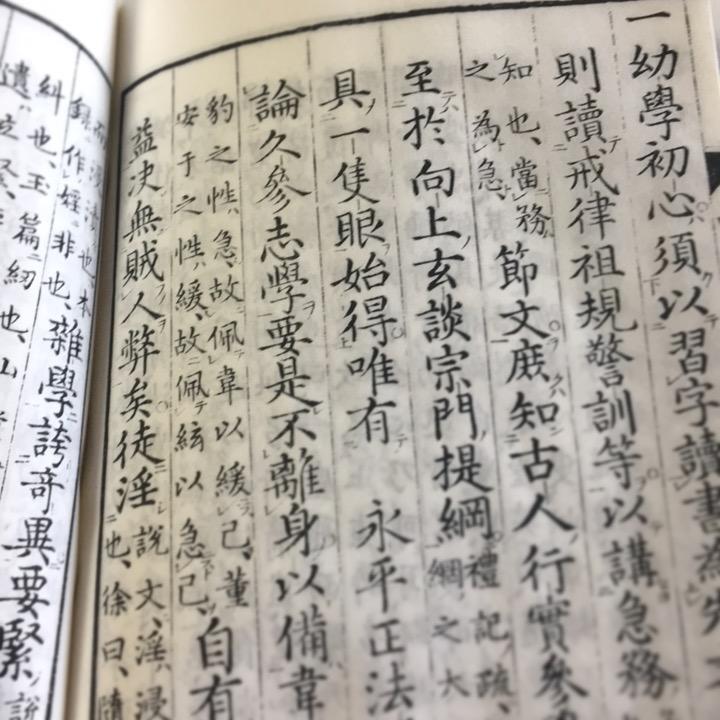 一幼學初心須以習字讀書為先
則讀戒律祖規警訓等以講急務
知也、當務
之為急、
節文庻知古人行實參
至於向上玄談宗門提綱
禮記疏、
綱之大
具一隻眼始得唯有 永平正法
論久參志學要是不離身以備韋
豹之性急、故佩韋以緩己、董
安于之性緩、故佩絃以急己、
自有
益决無賊人弊矣徒淫
說文、淫、浸
也、徐曰、隨
也、本
作婬非也、
雜學誇奇異要緊
說
糾也、玉篇紉也、
遺